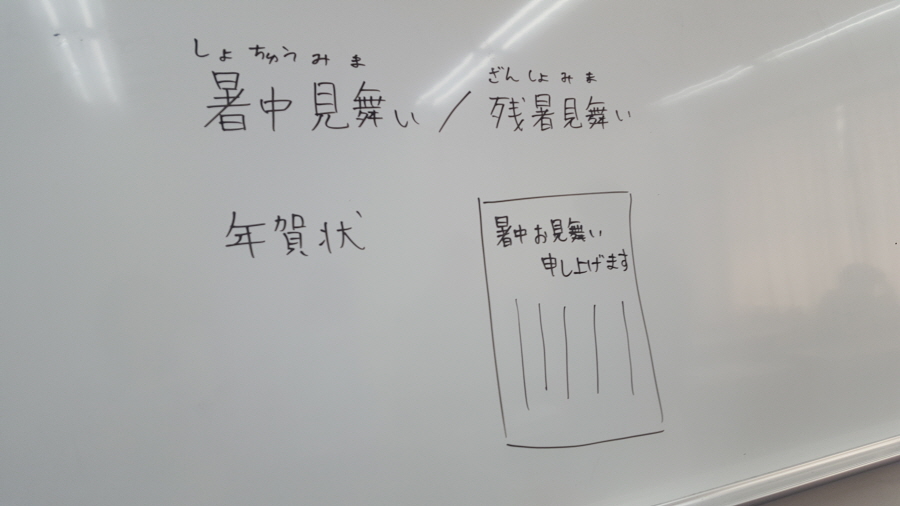 しょちゅうみま ざんしょみま
暑中見舞い/残暑見舞い
年賀状
暑中お見舞い
申し上げます